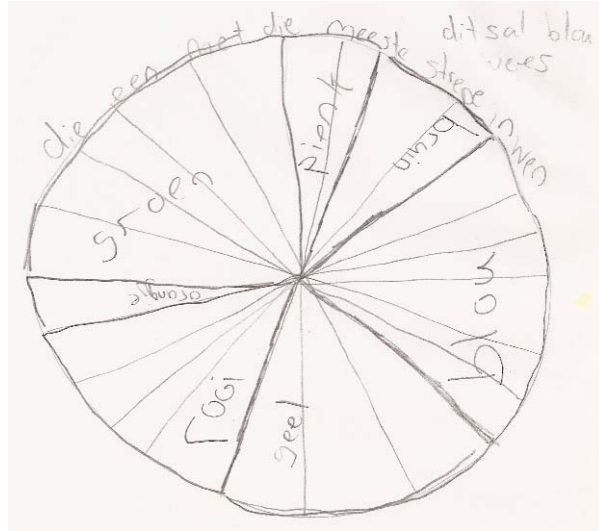 die een met die meeste strepe in wen
dit sal blou
wees
pienk
bruin
groen
blou
rooi
geel